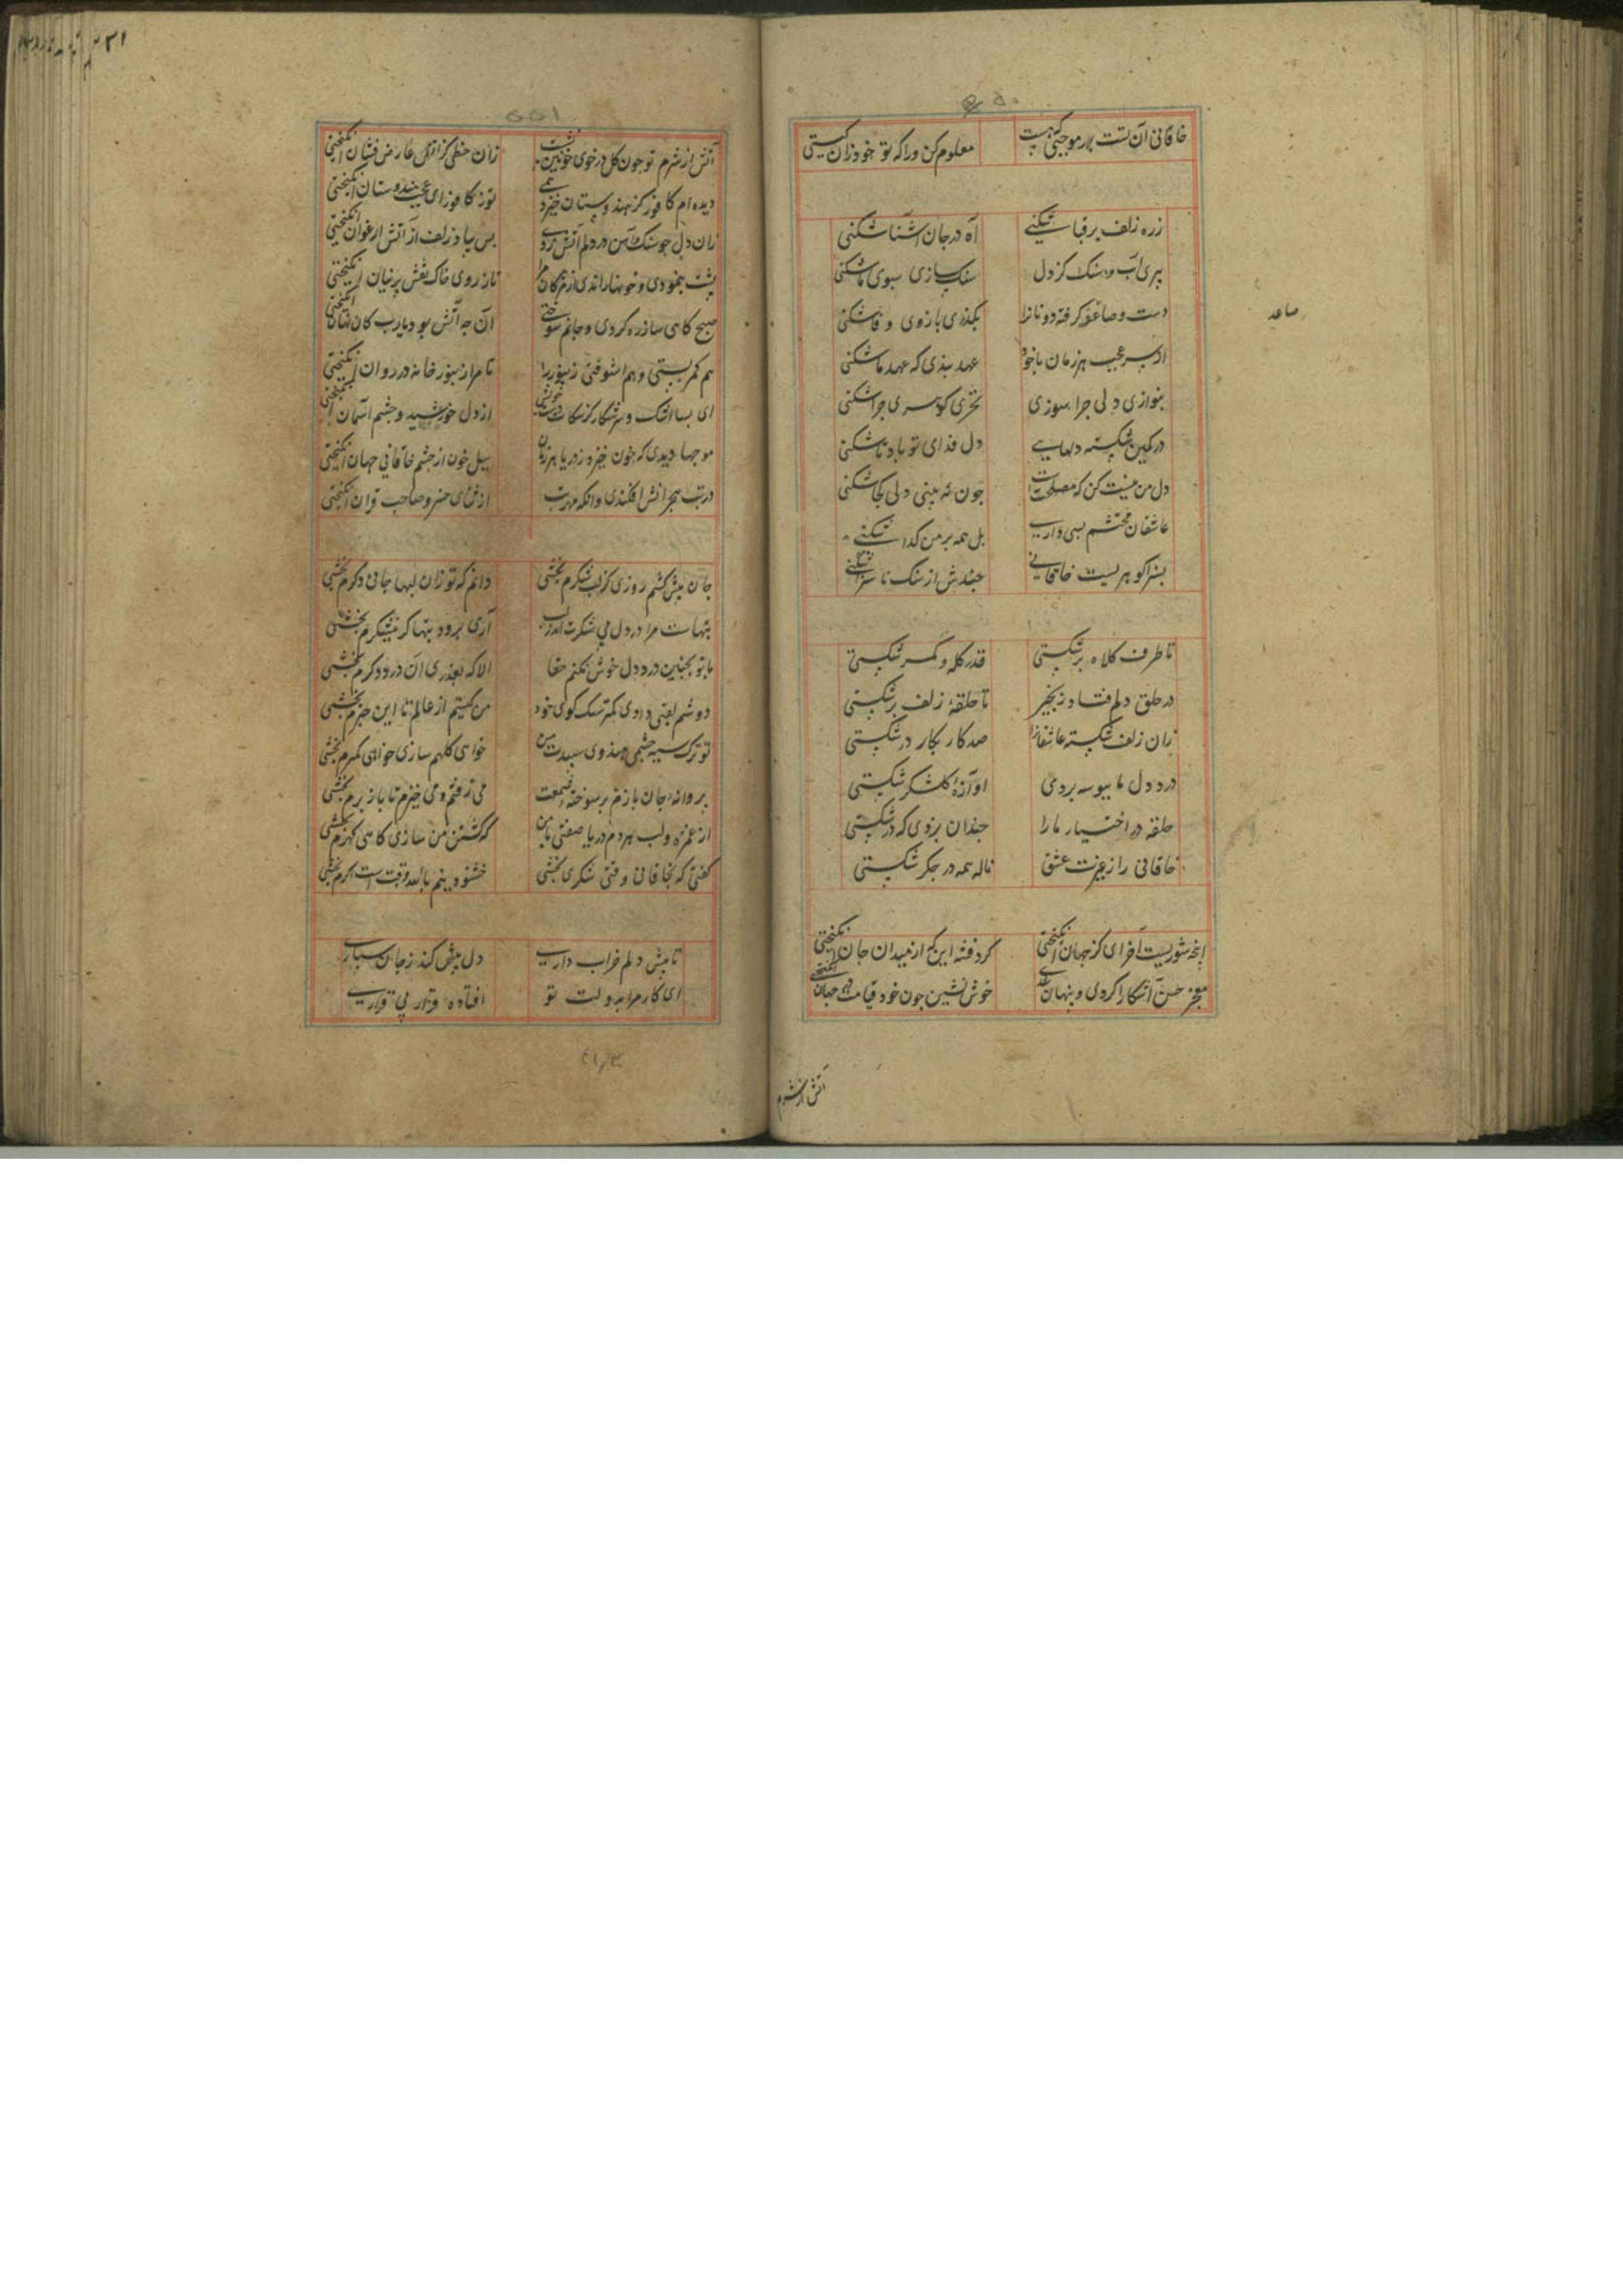 خاقانی آن تست بهر موجبی که هست معلوم کن ورا که تو خود زان کیستی
زره زلف بر قبا شکنی آه در جان آشنا شکنی
ببری آب و سنک کز دل سنک سازی سبوی ما شکنی
دست و صاعد کرفته دونانرا بکذری بازوی وفا شکنی
از سر عجب هر زمان با خود عهد بندی که عهد ما شکنی
بنوازی دلی جرا سوزی بخری کوهری جرا شکنی
در کمین شکسته دلهایی دل فدای تو باد تا شکنی
دل من نیست کن که مصلحت است جون نه بینی دلی کجا شکنی
عاشقان محتشم بسی داری بل همه بر من کدا شکنی
بسزا کوهریست خاقانی جندش از سنک ناسزا شکنی
تا طرف کلاه بر شکستی قدر کله و کمر شکستی
در حلق دلم فتاد زنجیر تا حلقهٔ زلف بر شکستی
زان زلف شکسته عاشقانرا صد کار بکار در شکستی
درد دل ما ببوسه بردی آوازهٔ کلشکر شکستی
حلقه در اختیار ما را جندان بزدی که در شکستی
خاقانی را ز غیرت عشق ناله همه در جکر شکستی
اینجه شوریست آخر ای کز جهان انکیختی کرد فتنه اینکه از میدان جان انکیختی
معجز حسن آشکارا کردی و پنهان شدی خوش نشین جون خود قیامت در جهان انکیختی
صاعد
آتش از شرم
آتش از شرم تو جون کل در خوی خونین نشست زان خطی کز اتش عارض فشان انکیختی
دیده ام کافور کز هندوستان خیزد همی تو ز کافور ای عجب هندوستان انکیختی
زان دل جو سنک و آهن در دلم آتش زدی بس بباد زلف از آتش ارغوان انکیختی
پشت بنمودی و خونها راندی از مژکان مرا تا ز روی خاک نقش پرنیان انکیختی
صبح کاهی ساز ره کردی و جانم سوختی آن جه آتش بود یارب کان زمان انکیختی
هم کمر بستی و هم اشوفتی زنبور را تا مرا زنبور خانه در روان انکیختی
ای بسا اشک و سرشکا کز رکاب خویش از دل خورشید و جشم آسمان انکیختی
موجها دیدی که خون خیزد ز دریا هر زمان سیل خون از جشم خاقانی جهان انکیختی
در تب هجرانش افکندی وانکه مهر تب از ثنای خسرو صاحب قران انکیختی
جان پیش کشم روزی کز لب شکرم بخشی دانم که تو زان لبها جانی دکرم بخشی
تبهاست مرا در دل می شکرت اندر لب آری برود تبها کر نیشکرم بخشی
با تو بجنین درد دل خوش نکنم حقا الا که بعذری ان درد دکرم بخشی
دوشم لقبی دادی کمتر سک کوی خود من کیستم از عالم تا این خبرم بخشی
تو ترک سیه جشمی هندوی سپیدت من خواهی کلهم سازی خواهی کمرم بخشی
پروانهٔ جان بازم پر سوخته شمعت می زفتم و می خیزم تا باز پرم بخشی
از غمزه و لب هر دم دریا صفتی با من که کشتن من سازی کاهی کهرم بخشی
کفتی که بخاقانی وقتی شکری بخشی خشنود ینم بالله وقت است اکرم بخشی
تا پیش دلم خراب داری دل پیش کند ز جان سپاری
ای کار مرا بدولت تو افتاده قرار بی قراری